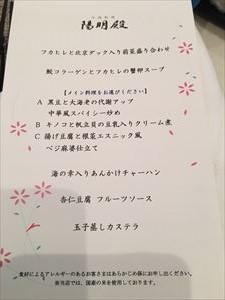 中国料理
陽明殿
フカヒレと北京ダック入り前菜盛り合わせ
鮫コラーゲンとフカヒレの蟹卵スープ
【メイン料理をお選びください】
A 黒豆と大海老の代謝アップ
中華風スパイシー炒め
B キノコと帆立貝の豆乳入りクリーム煮
C 揚げ豆腐と根菜エスニック風
ベジ麻婆仕立て
海の幸入りあんかけチャーハン
杏仁豆腐 フルーツソース
玉子蒸しカステラ
食材によるアレルギーのあるお客さまはあらかじめ係にお申し出ください。
※当店では、国産の米を使用しております。